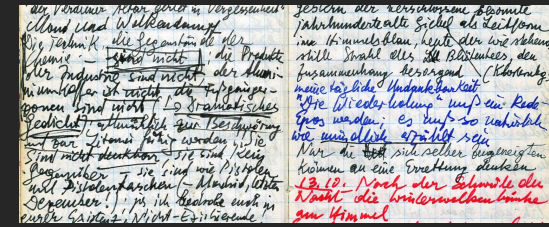 der Verdurner Altar gerät in Vergessenheit
Mond und Wolkendampf
Die Technik, die Gegenstände der
Chemie – sind nicht, die Produkte
der Industrie sind nicht, der
ist nicht, die
sind nicht (→ Dramatisches
Gedicht) allmählich zur Beschwörung
und zur Litanei führt werden, "Sie
sind nicht denkbar – Sie sind kein
Gegenüber – sie sind wie Pistolen
und Pistolentaschen (– Madrid, letzten
Dezember!) ja, ich bedrohe euch in
eurer Existenz, Nicht-Existierende!
gestern der
jahrhundertealte Giebel als Leitform
im Himmelsblau, heute der wie stehend
stille Strahl des den
Zusammenhang besorgend
meine tägliche Undankbarkeit
"Die Wiederholung" muß ein Rede-
Epos werden; es muß so natürlich
wie mündlich erzählt sein
Nur die sich selber
können an eine Errettung denken
13.10. Nach der Schwüle der
Nacht die Winterwolkenbänke
am Himmel